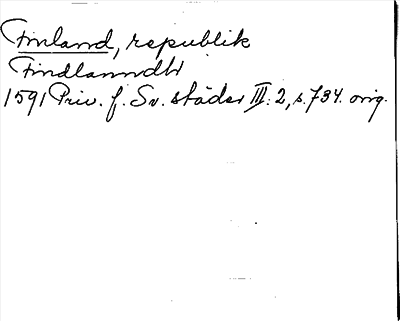 Finland, republik
Findlanndh
1591 Priv. f. Sv. städer III: 2, s. 734. orig.